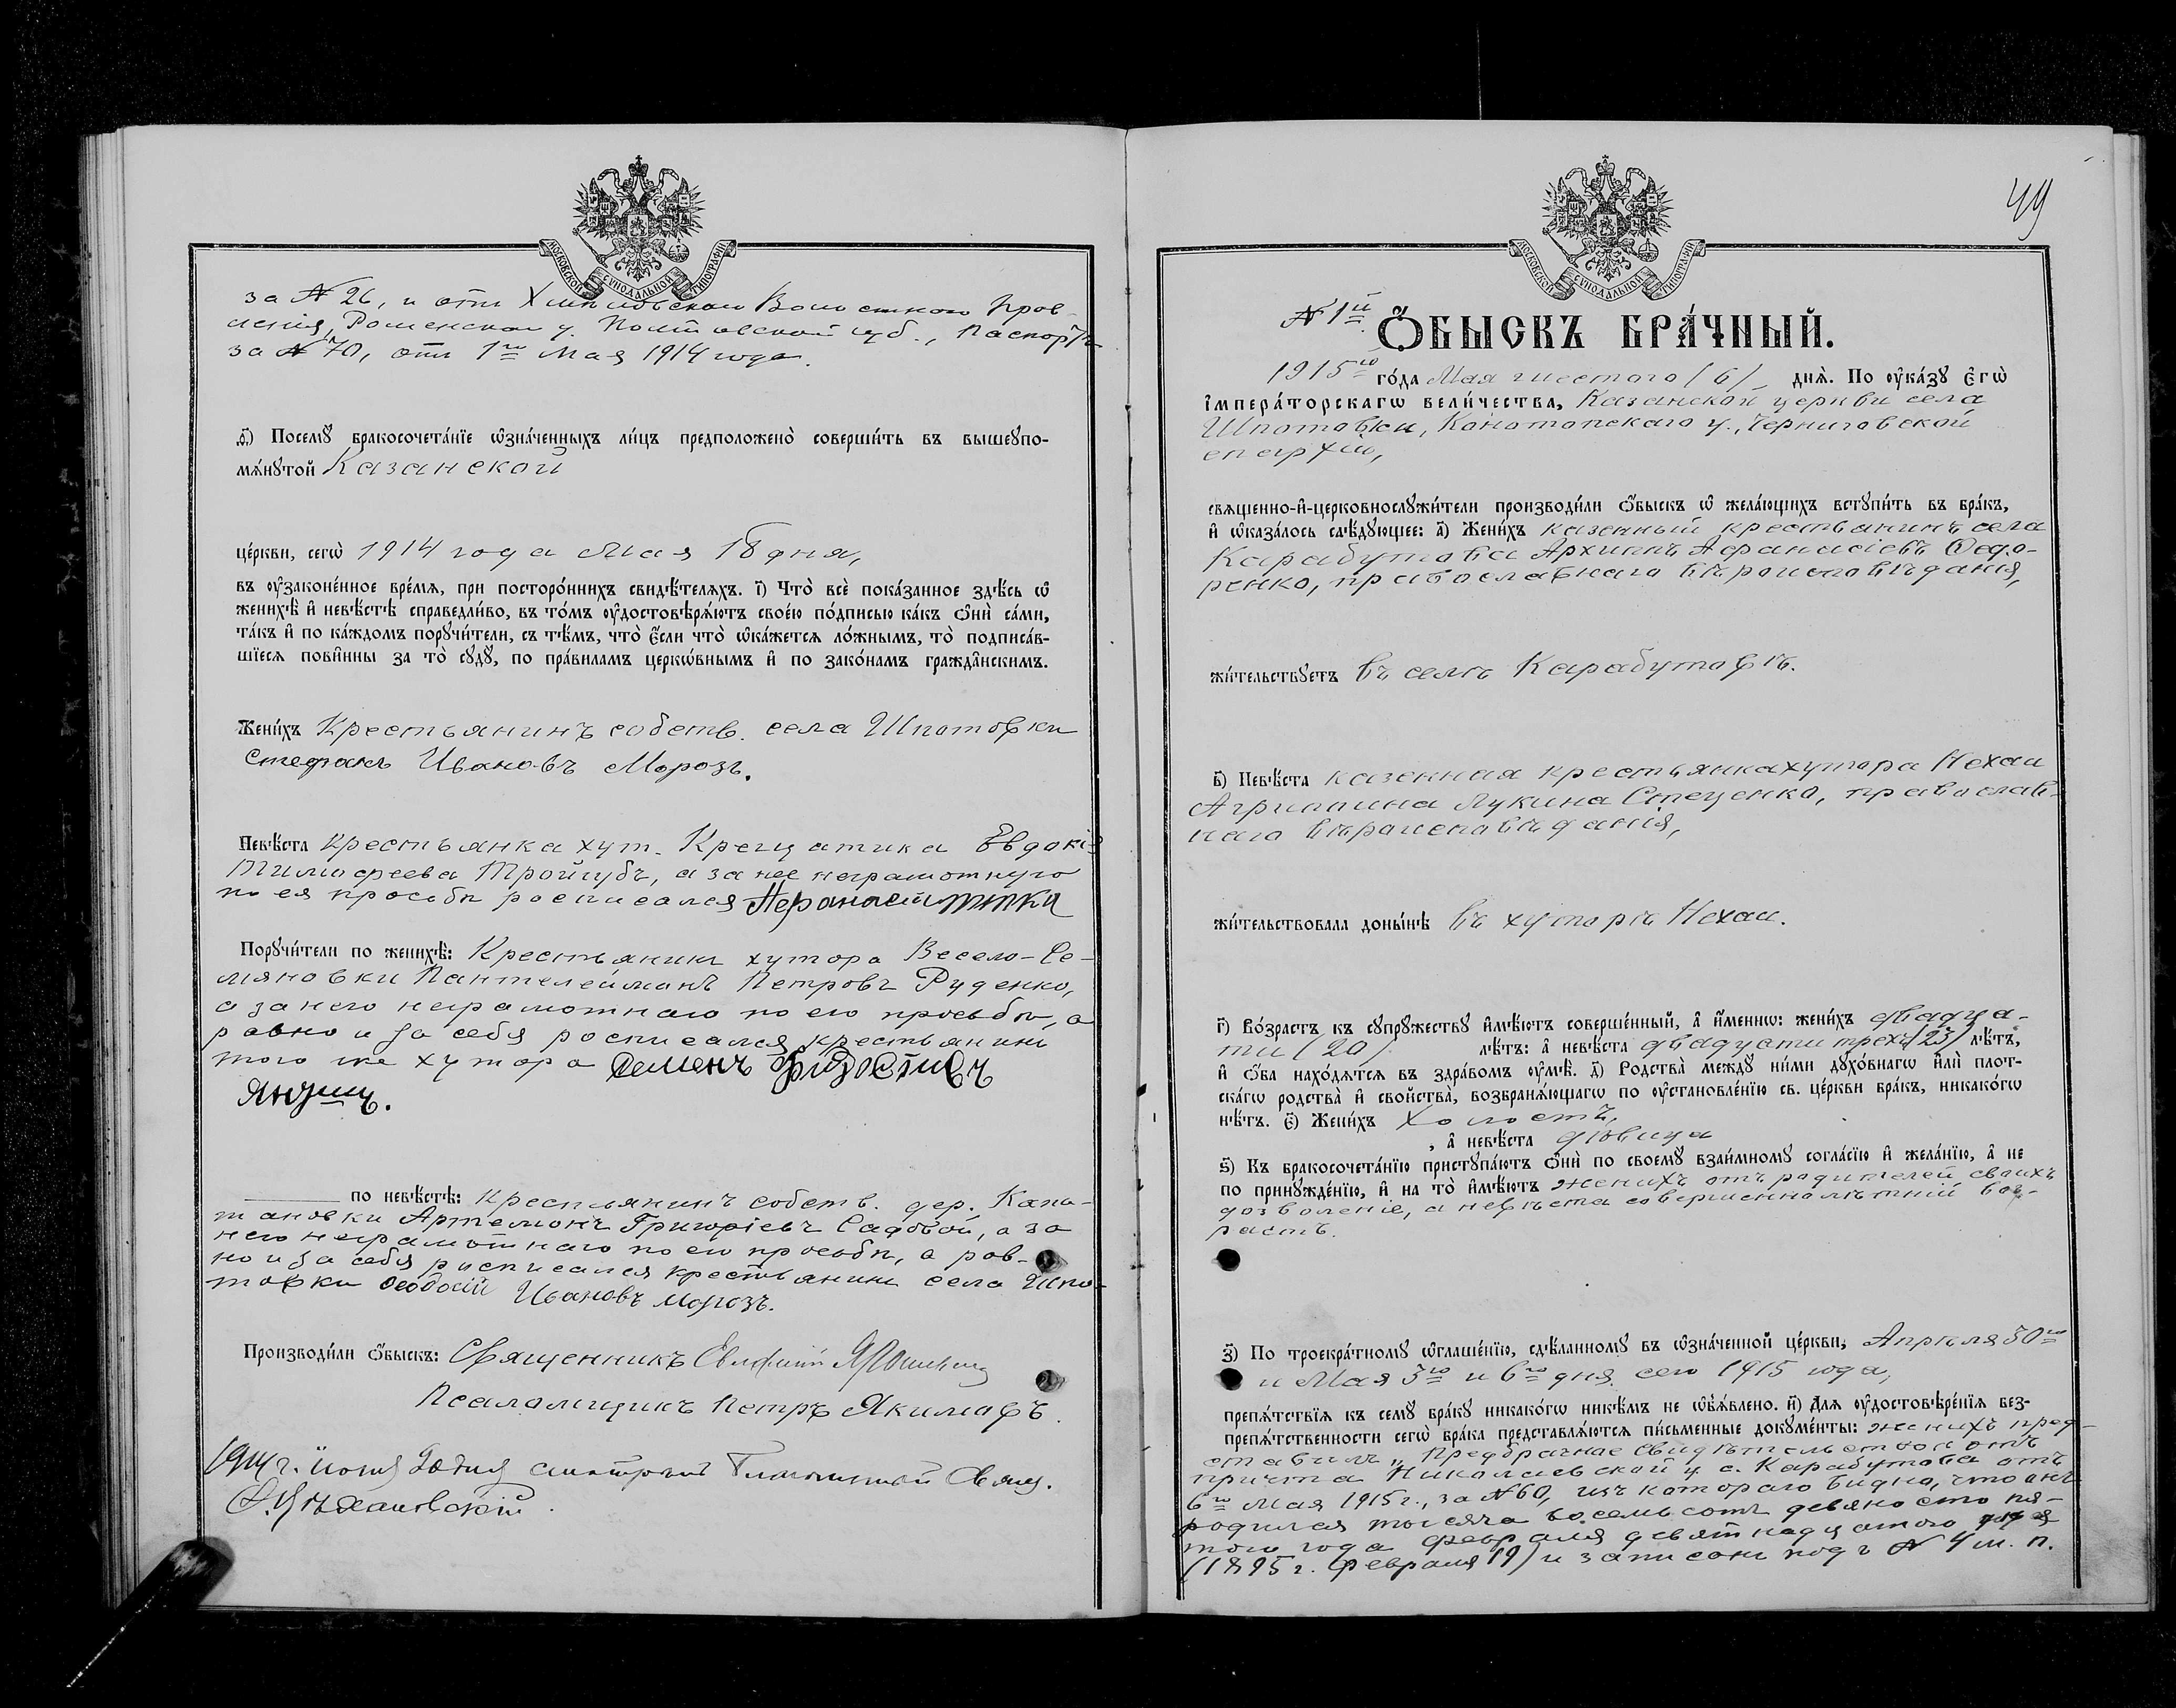 МОСКОВСКОЙ СѴНОДАЛЬНОЙ ТИПОГРАФІИ
за № 26, и отъ Хмѣловскаго Волостного Прав-
ленія, Роменскаго у. Полтавской губ., Паспортъ
за № 70, отъ 1го Мая 1914 года.
ѳ҃) Посемꙋ̀ бракосочета́нїе ѡ҆зна́ченныхъ ли́цъ предположено̀ соверши́ть въ вышеꙋпо-
мѧ́нꙋтой Казанской
це́ркви, сегѡ̀ 1914 года Мая 18 дня,
въ ᲂу҆законе́нное вре́мѧ, при посторо́ннихъ свидѣ́телѧхъ. і҃) Что̀ всѐ пока́занное здѣ́сь ѡ҆
женихѣ̀ и҆ невѣ́стѣ справедли́во, въ то́мъ ᲂу҆достовѣрѧ́ютъ свое́ю по́дписью ка́къ ѻ҆нѝ са́ми,
та́къ и҆ по ка́ждомъ порꙋчи́тели, съ тѣ́мъ, что̀ є҆́сли что̀ ѡ҆ка́жетсѧ ло́жнымъ, то̀ подписа́в-
шїесѧ пови́нны за то̀ сꙋдꙋ̀, по пра́виламъ церкѡ́внымъ и҆ по зако́намъ гражда́нскимъ.
Жени́хъ Крестьянинъ собств. села Шпотовки
Стефанъ Ивановъ Морозъ.
Невѣ́ста крестьянка хут. Крещатика Евдокія
Тимофеева Тройгубъ, а за нее неграмотную
по ея просьбѣ росписался
Порꙋчи́тели по женихѣ̀: Крестьянинъ хутора Весело-Се-
мяновки Пантелеймонъ Петровъ Руденко,
а за него неграмотнаго по его просьбѣ, а
равно и за себя росписался крестьянинъ
того же хутора Семенъ
по невѣ́стѣ: крестьянинъ собств. дер. Капи-
тановки Артемонъ Григоріевъ Садовой, а за
него неграмотнаго по его просьбѣ, а рав-
но и за себя росписался крестьянинъ села Шпо-
товки Ѳеодосій Ивановъ Морозъ.
Производи́ли ѻ҆́быскъ: Священникъ Евфимій
Псаломщикъ Петръ Якимовъ.
1914 г. Іюня дня смотрѣлъ Благочинный Свящ.
49
МОСКОВСКОЙ СѴНОДАЛЬНОЙ ТИПОГРАФІИ
№ 1й
Ѻ҆́БЫСКЪ БРА́ЧНЫЙ.
1915го го́да Мая шестого (6) днѧ̀. По ᲂу҆ка́зꙋ Є҆гѡ̀
І҆мпера́торскагѡ вели́чества, Казанской церкви села
Шпотовки, Конотопскаго у., Черниговской
епархіи,
свѧще́нно-и҆-церковнослꙋжи́тели производи́ли ѻ҆́быскъ ѡ҆ жела́ющихъ встꙋпи́ть въ бра́къ,
и҆ ѡ҆каза́лось слѣ́дꙋющее: а҃) Жени́хъ казенный крестьянинъ села
Карабутова Архипъ Афанасіевъ Ѳедо-
ренко, православнаго вѣроисповѣданія,
жи́тельствꙋетъ въ селѣ Карабутовѣ.
в҃) Невѣ́ста казенная крестьянка хутора Нехаи
Агрипина Лукина Стеценко, православ-
наго вѣроисповѣданія,
жи́тельствовала доны́нѣ въ хуторѣ Нехаи.
г҃) Во́зрастъ къ сꙋпрꙋ́жествꙋ и҆мѣ́ютъ соверше́нный, а҆ и҆́меннѡ: жени́хъ двадца-
ти (20) лѣ́тъ: а҆ невѣ́ста двадцати трехъ (23) лѣ́тъ,
и҆ ѻ҆́ба нахо́дѧтсѧ въ здра́вомъ ᲂу҆мѣ̀. д҃) Родства̀ междꙋ̀ ни́ми дꙋхо́внагѡ и҆лѝ плот-
ска́гѡ родства̀ и҆ свойства̀, возбранѧ́ющагѡ по ᲂу҆становле́нїю св. це́ркви бра́къ, никако́гѡ
нѣ́тъ. є҃) Жени́хъ холостъ,
, а҆ невѣ́ста дѣвица
ѕ҃) Къ бракосочета́нїю пристꙋпа́ютъ ѻ҆нѝ по своемꙋ̀ взаи́мномꙋ согла́сїю и҆ жела́нїю, а҆ не
по принꙋжде́нїю, и҆ на то̀ и҆мѣ́ютъ женихъ отъ родителей своихъ
дозволеніе, а невѣста совершеннолѣтній воз-
растъ.
з҃) По троекра́тномꙋ ѡ҆глаше́нїю, сдѣ́ланномꙋ въ ѡ҆зна́ченной це́ркви, Апрѣля 30го
и Мая 3го и 6го дня сего 1915 года,
препѧ́тствїѧ къ семꙋ̀ бра́кꙋ никако́гѡ никѣ́мъ не ѡ҆б̾ѧ́влено. и҃) Длѧ̀ ᲂу҆достовѣре́нїѧ без-
препѧ́тственности сегѡ̀ бра́ка представлѧ́ютсѧ пи́сьменные докꙋме́нты: женихъ пред-
ставилъ „Предбрачное свидѣтельство" отъ
причта Николаевской ц. с. Карабутова отъ
6го Мая 1915 г., за № 60, изъ котораго видно, что онъ
родился тысяча восемьсотъ девяносто пя-
того года февраля девятнадцатого дня
(1895 г. февраля 19) и записанъ подъ № 4 м. п.